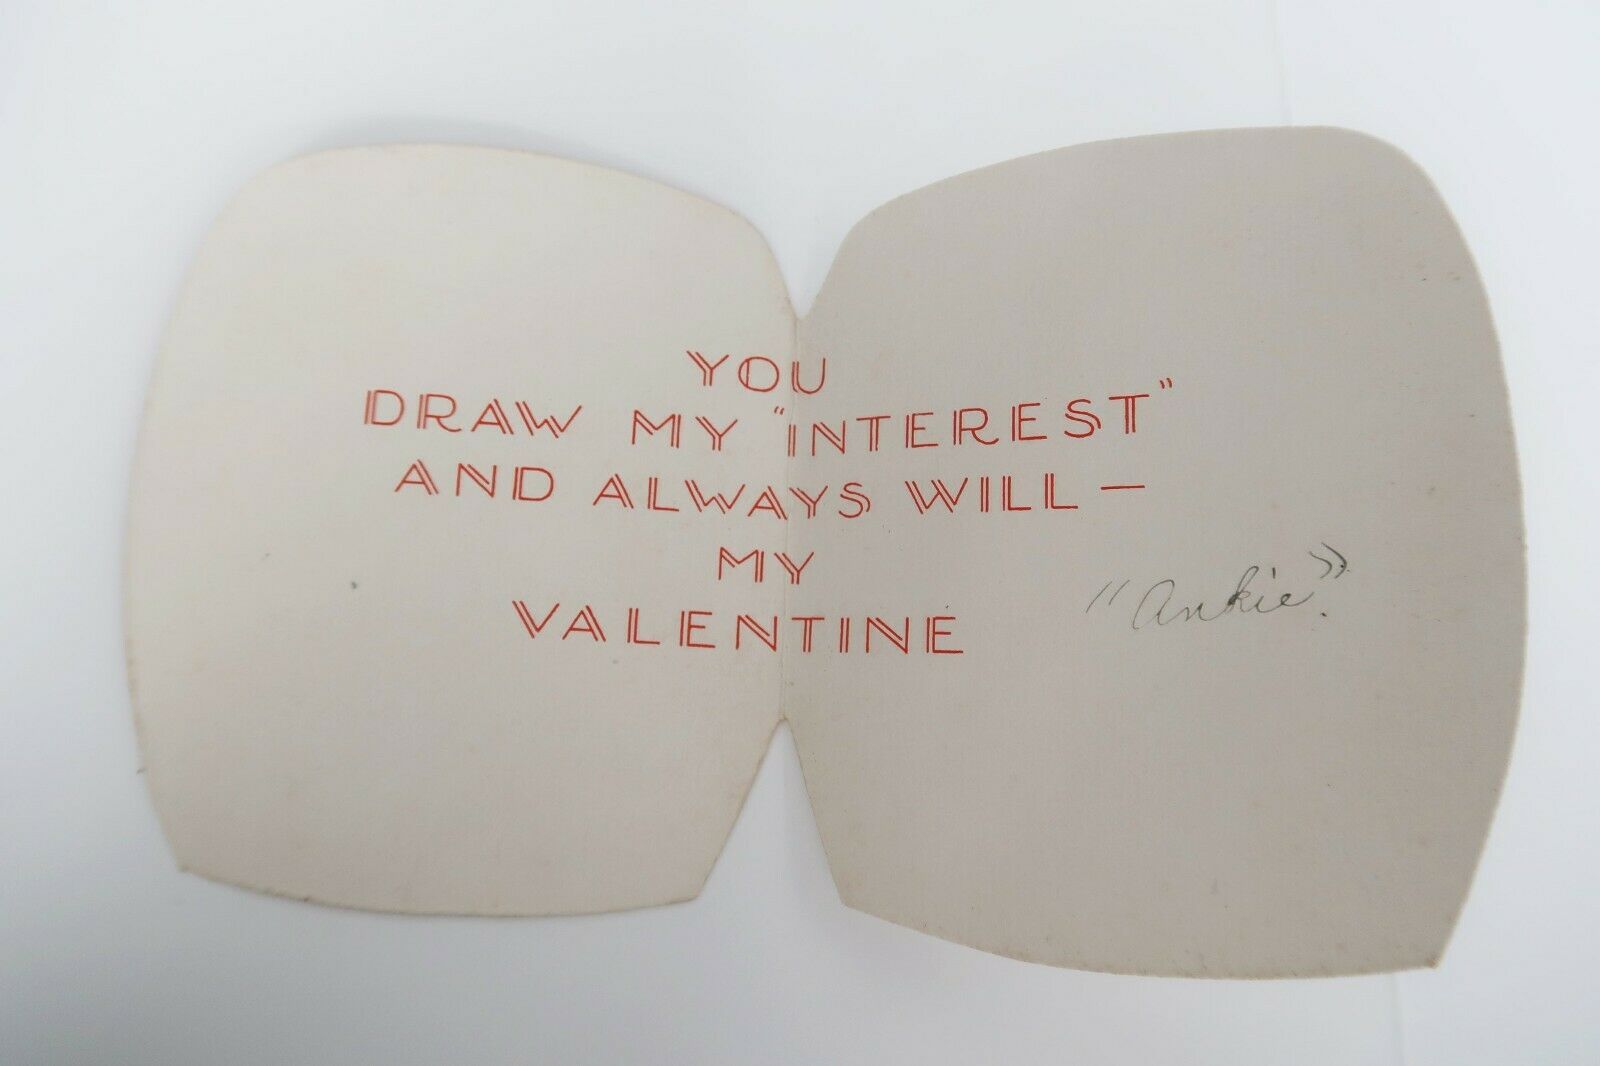 YOU
DRAW MY "INTEREST"
AND ALWAYS WILL —
MY
VALENTINE
"Ankie".